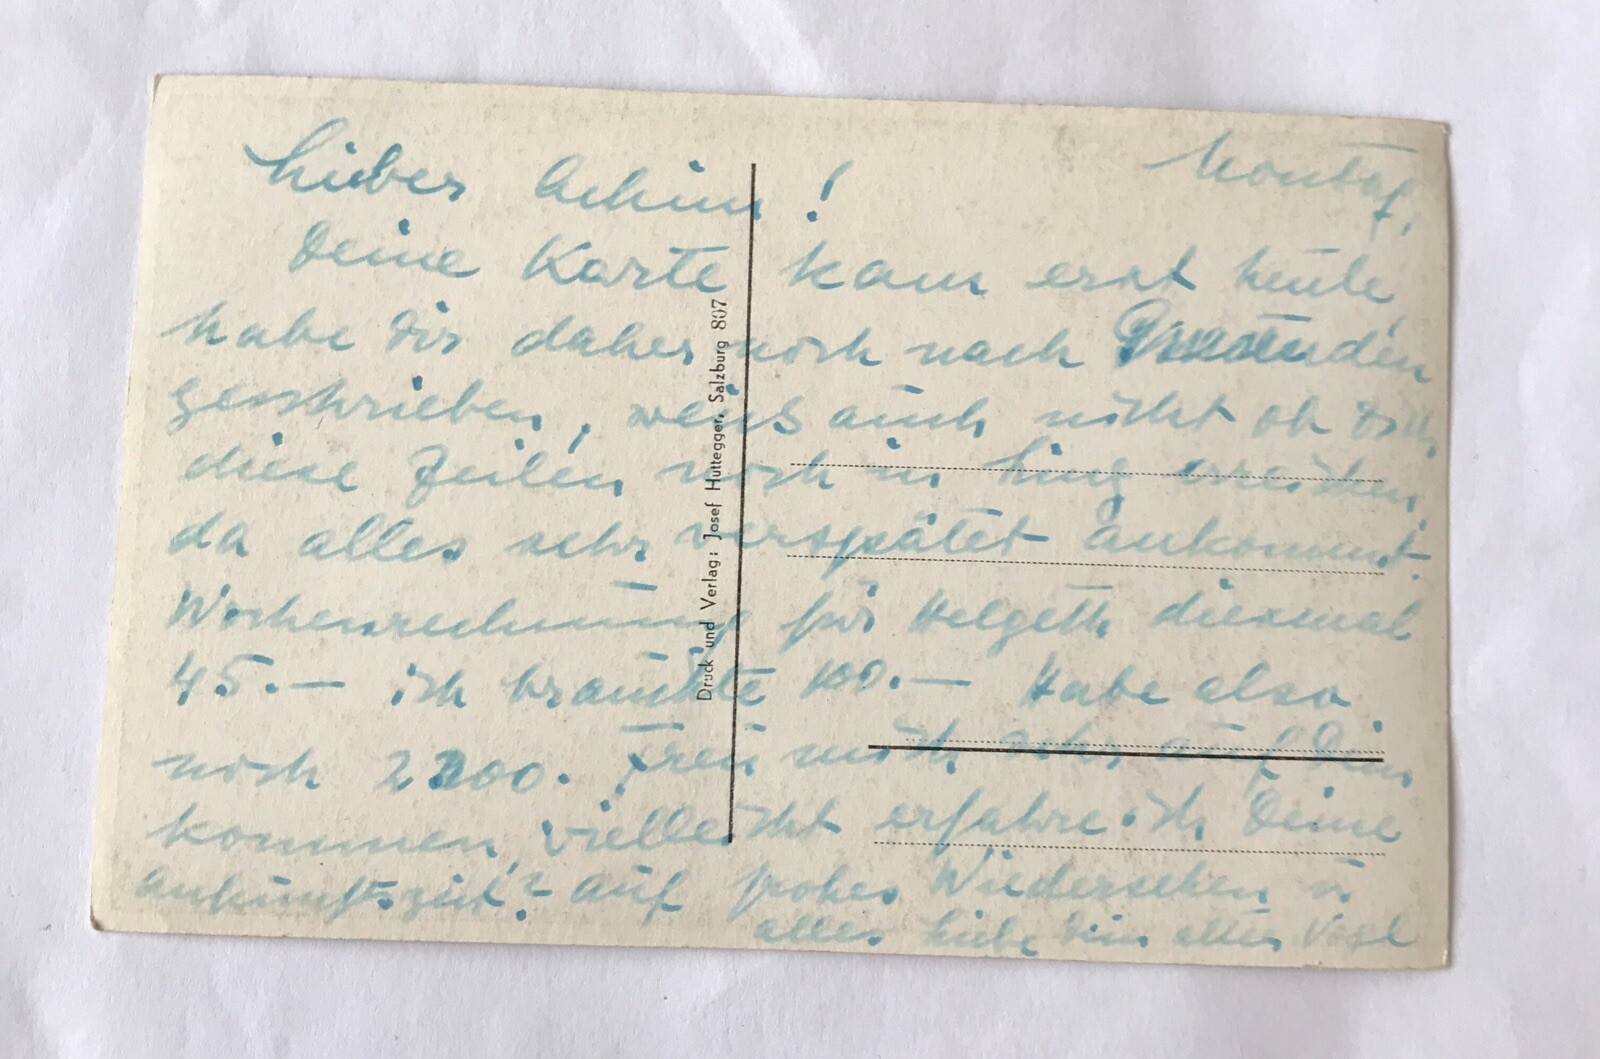 Montag,
Lieber Achim!
Deine Karte kam erst heute,
habe Dir daher noch nach Gmunden
geschrieben, weiß auch nicht ob Dich
diese Zeilen noch in Linz erreichen,
da alles sehr verspätet ankommt.
Wochenrechnung für diesmal
45.— ich brauchte 100.— Habe also
noch 2200. Freu mich sehr auf Dein
kommen, vielleicht erfahre ich Deine
Ankunftszeit? auf frohes Wiedersehen u
alles Liebe Dein alter Vogl
Druck und Verlag: Josef Huttegger, Salzburg 807